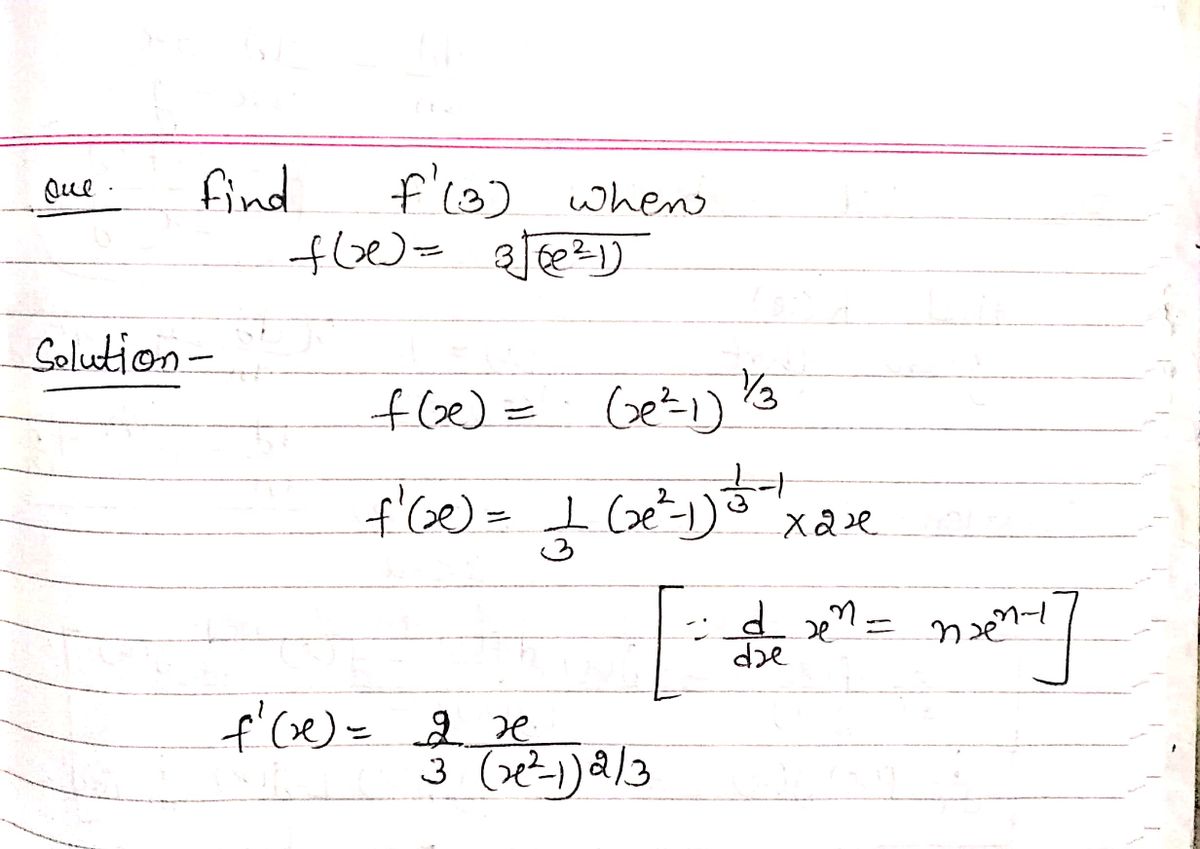 Que. find f'(3) when
f(x) = ∛(x²-1)
Solution -
f(x) = (x²-1)^1/3
f'(x) = 1/3 (x²-1)^(1/3 -1) × 2x
[∵ d/dx xⁿ = n xⁿ⁻¹]
f'(x) = 2/3 x/(x²-1)^2/3